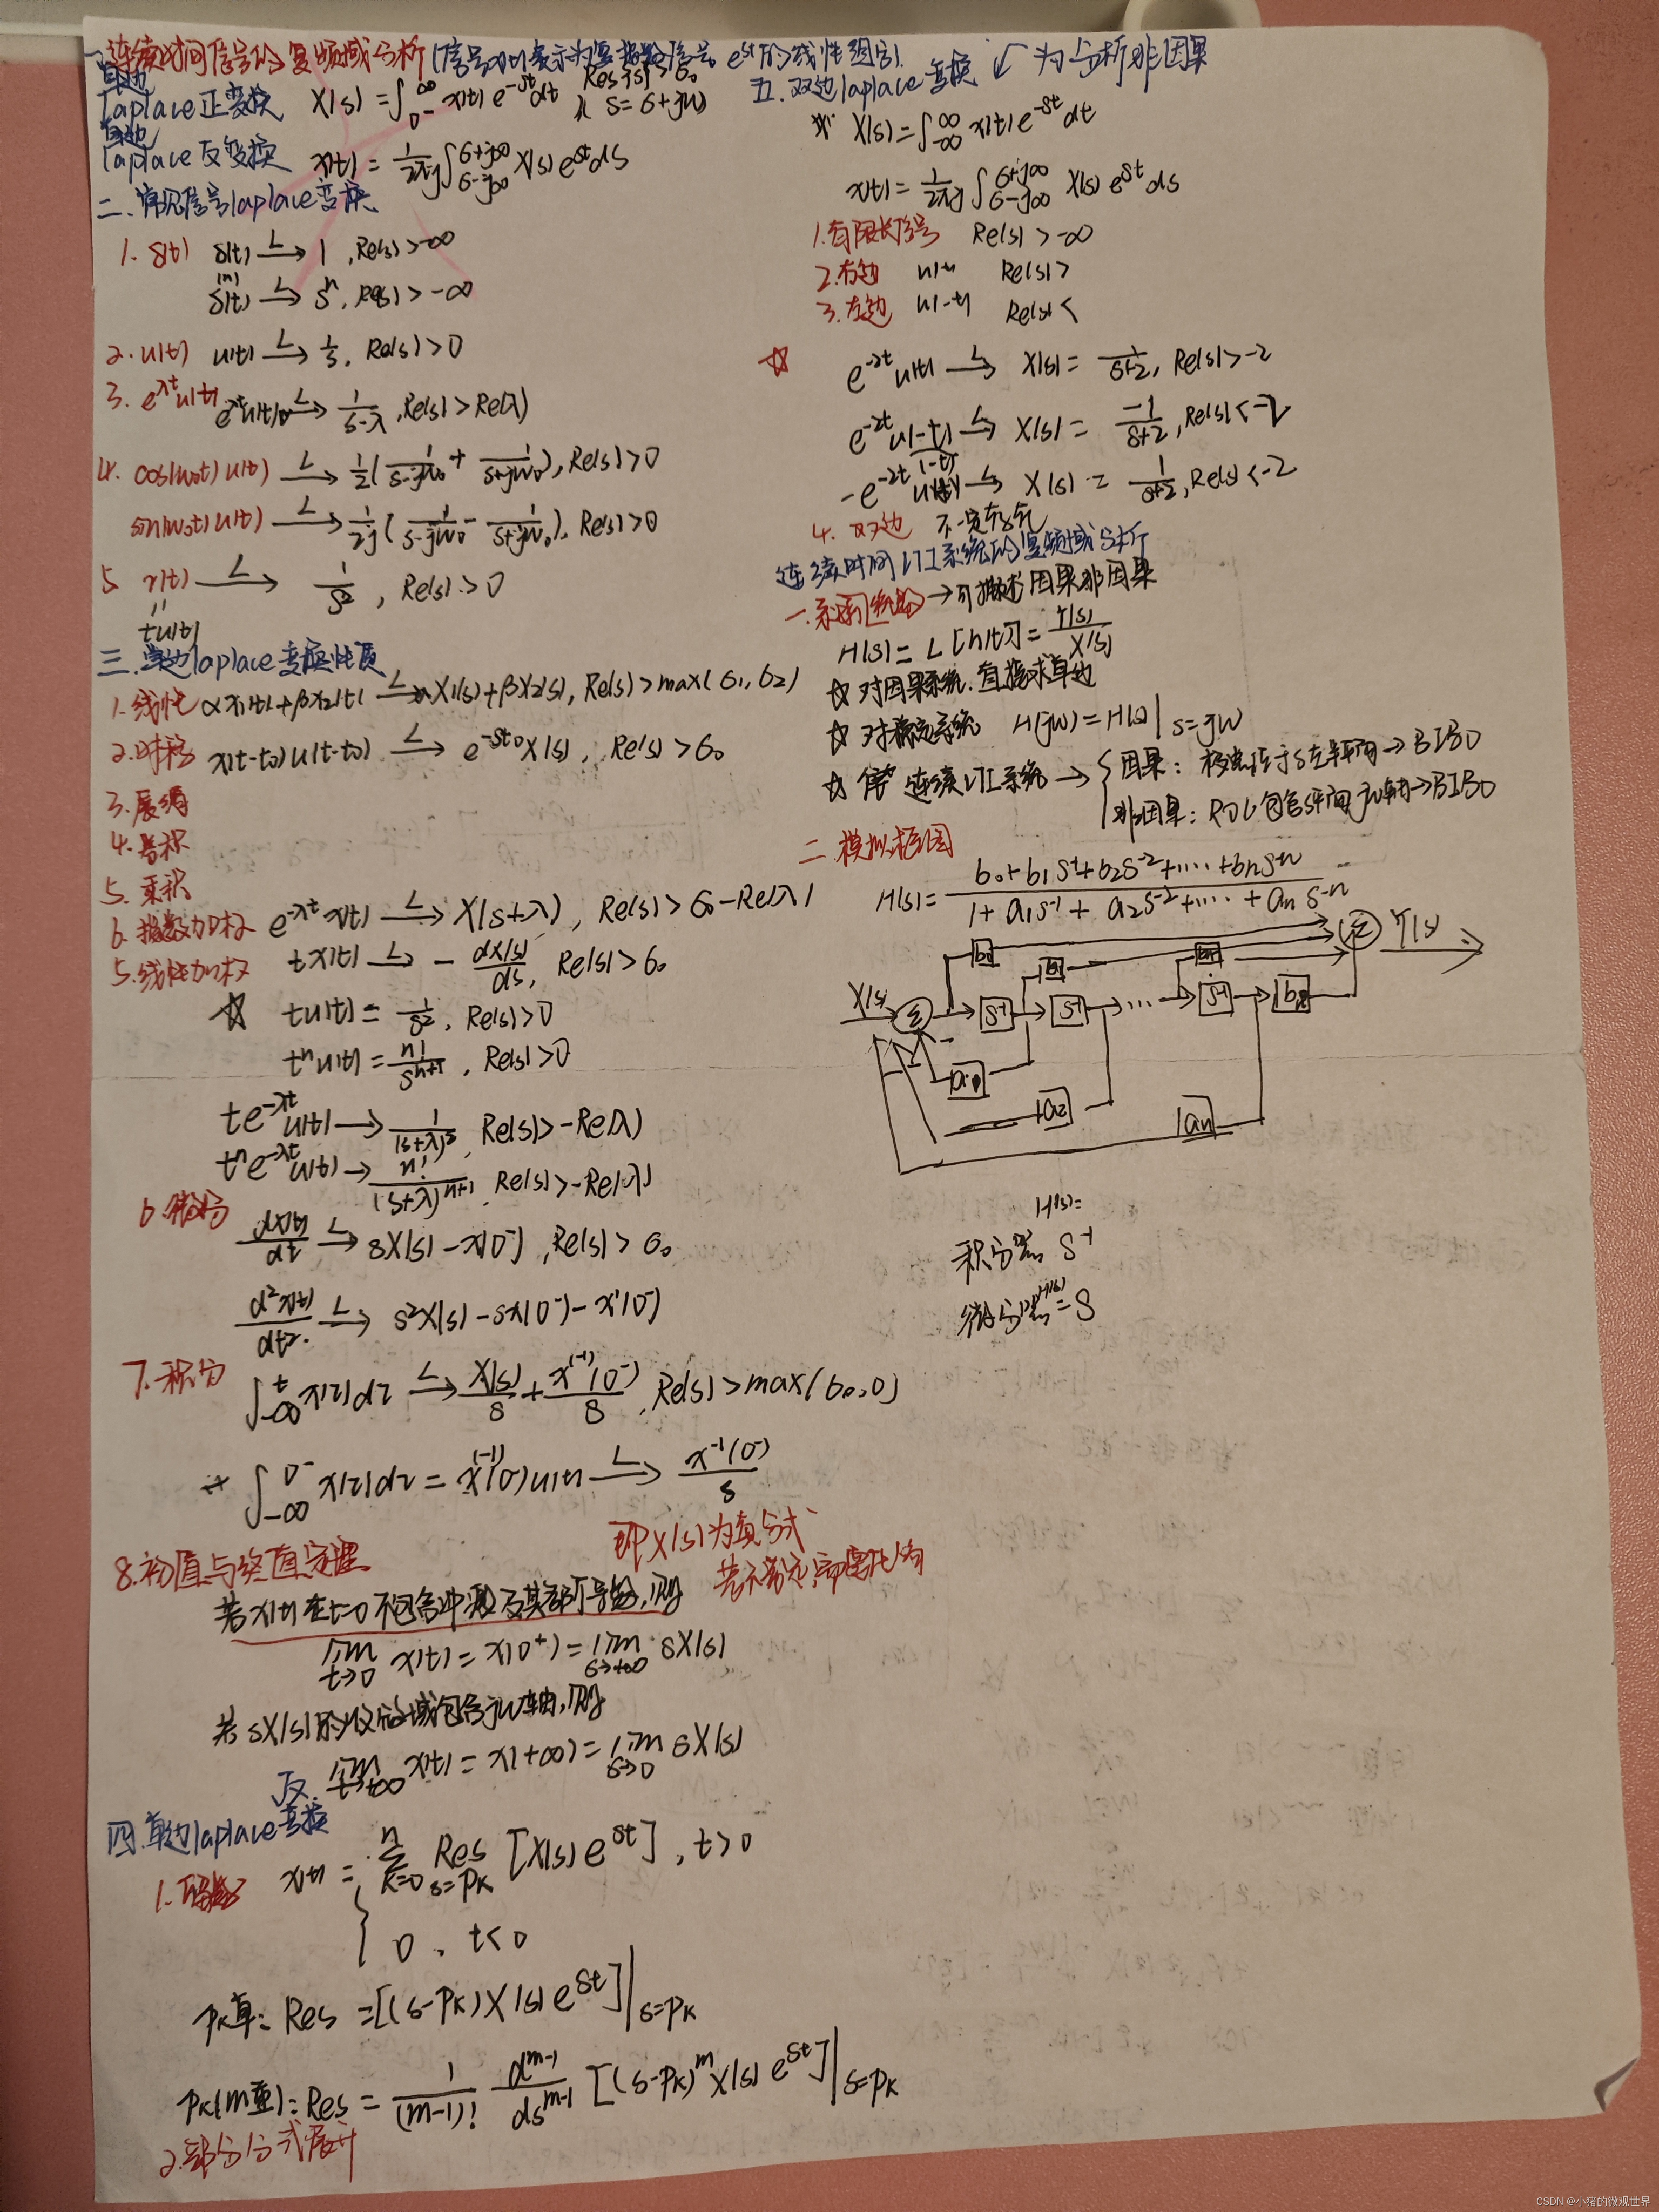 一.连续时间信号的复频域分析(信号x(t)表示为复指数信号e^{st}的线性组合).
单边
laplace正变换 X(s)=∫_{0^-}^{∞} x(t)e^{-st}dt Re{s}>σ₀ s=σ+jω
单边
laplace反变换 x(t)=\frac{1}{2πj}∫_{σ-j∞}^{σ+j∞} X(s)e^{st}ds
二.常见信号laplace变换
1. δ(t) δ(t) —L→ 1 ,Re(s)>-∞
δ^{(n)}(t) —L→ s^n, Re(s)>-∞
2. u(t) u(t) —L→ 1/s, Re(s)>0
3. e^{λt}u(t) e^{λt}u(t) —L→ \frac{1}{s-λ} ,Re(s)>Re(λ)
4. cos(ω₀t)u(t) —L→ \frac{1}{2}(\frac{1}{s-jω₀}+\frac{1}{s+jω₀}), Re(s)>0
sin(ω₀t)u(t) —L→ \frac{1}{2j}(\frac{1}{s-jω₀}-\frac{1}{s+jω₀}), Re(s)>0
5 r(t) —L→ \frac{1}{s²} , Re(s)>0
=
tu(t)
三.单边laplace变换性质
1.线性 αx₁(t)+βx₂(t) —L→ αX₁(s)+βX₂(s), Re(s)>max(σ₁,σ₂)
2.时移 x(t-t₀)u(t-t₀) —L→ e^{-st₀}X(s), Re(s)>σ₀
3.展缩
4.卷积
5.乘积
6.指数加权 e^{-λt}x(t) —L→ X(s+λ), Re(s)>σ₀-Re(λ)
5.线性加权 tx(t) —L→ -\frac{dX(s)}{ds}, Re(s)>σ₀
☆ tu(t)=\frac{1}{s²}, Re(s)>0
t^n u(t)=\frac{n!}{s^{n+1}}, Re(s)>0
te^{-λt}u(t)→\frac{1}{(s+λ)²}, Re(s)>-Re(λ)
t^n e^{-λt}u(t)→\frac{n!}{(s+λ)^{n+1}}, Re(s)>-Re(λ)
6.微分
\frac{dx(t)}{dt} —L→ sX(s)-x(0^-) ,Re(s)>σ₀
\frac{d²x(t)}{dt²} —L→ s²X(s)-sx(0^-)-x'(0^-)
7.积分
∫_{-∞}^{t}x(τ)dτ —L→ \frac{X(s)}{s}+\frac{x^{(-1)}(0^-)}{s}, Re(s)>max(σ₀,0)
∫_{-∞}^{0^-}x(τ)dτ=x^{(-1)}(0^-)u(t) —L→ \frac{x^{-1}(0^-)}{s}
8.初值与终值定理
即X(s)为真分式
若x(t)在t=0不包含冲激及其各阶导数,则
lim_{t→0} x(t)=x(0^+)=lim_{s→+∞} sX(s)
若sX(s)的收敛域包含jω轴,则
lim_{t→+∞} x(t)=x(+∞)=lim_{s→0} sX(s)
四.单边laplace反变换
1.留数 x(t)={ Σ_{k=0}^{n} Res_{s=p_k}[X(s)e^{st}], t>0
0, t<0
p_k单: Res=[(s-p_k)X(s)e^{st}]|_{s=p_k}
p_k(m重): Res=\frac{1}{(m-1)!}\frac{d^{m-1}}{ds^{m-1}}[(s-p_k)^m X(s)e^{st}]|_{s=p_k}
2.部分分式展开
五.双边laplace变换 ↙为分析非因果
X(s)=∫_{-∞}^{∞}x(t)e^{-st}dt
x(t)=\frac{1}{2πj}∫_{σ-j∞}^{σ+j∞}X(s)e^{st}ds
1.有限长信号 Re(s)>-∞
2.右边 u(t) Re(s)>
3.左边 u(-t) Re(s)<
☆ e^{-2t}u(t) —L→ X(s)=\frac{1}{s+2}, Re(s)>-2
e^{-2t}u(-t) —L→ X(s)=\frac{-1}{s+2}, Re(s)<-2
-e^{-2t}u(-t) —L→ X(s)=\frac{1}{s+2}, Re(s)<-2
4.双边 不一定存在
连续时间LTI系统的复频域分析
一.系统函数→可描述因果非因果
H(s)=L[h(t)]=\frac{Y(s)}{X(s)}
☆对因果系统.直接求单边
☆对稳定系统 H(jω)=H(s)|_{s=jω}
☆ 连续LTI系统→{因果: 极点位于s左半平面→BIBO
非因果: ROC包含s平面jω轴→BIBO
二.模拟框图
H(s)=\frac{b₀+b₁s^{-1}+b₂s^{-2}+····+b_n s^{-n}}{1+a₁s^{-1}+a₂s^{-2}+····+a_n s^{-n}}
Σ Y(s)
b₀ b₁
X(s) Σ s^{-1} s^{-1} ··· s^{-1} b_n
a₁
a₂ a_n
H(s)=
积分器 s^{-1}
H(s)
微分器=s
CSDN @小猪的微观世界